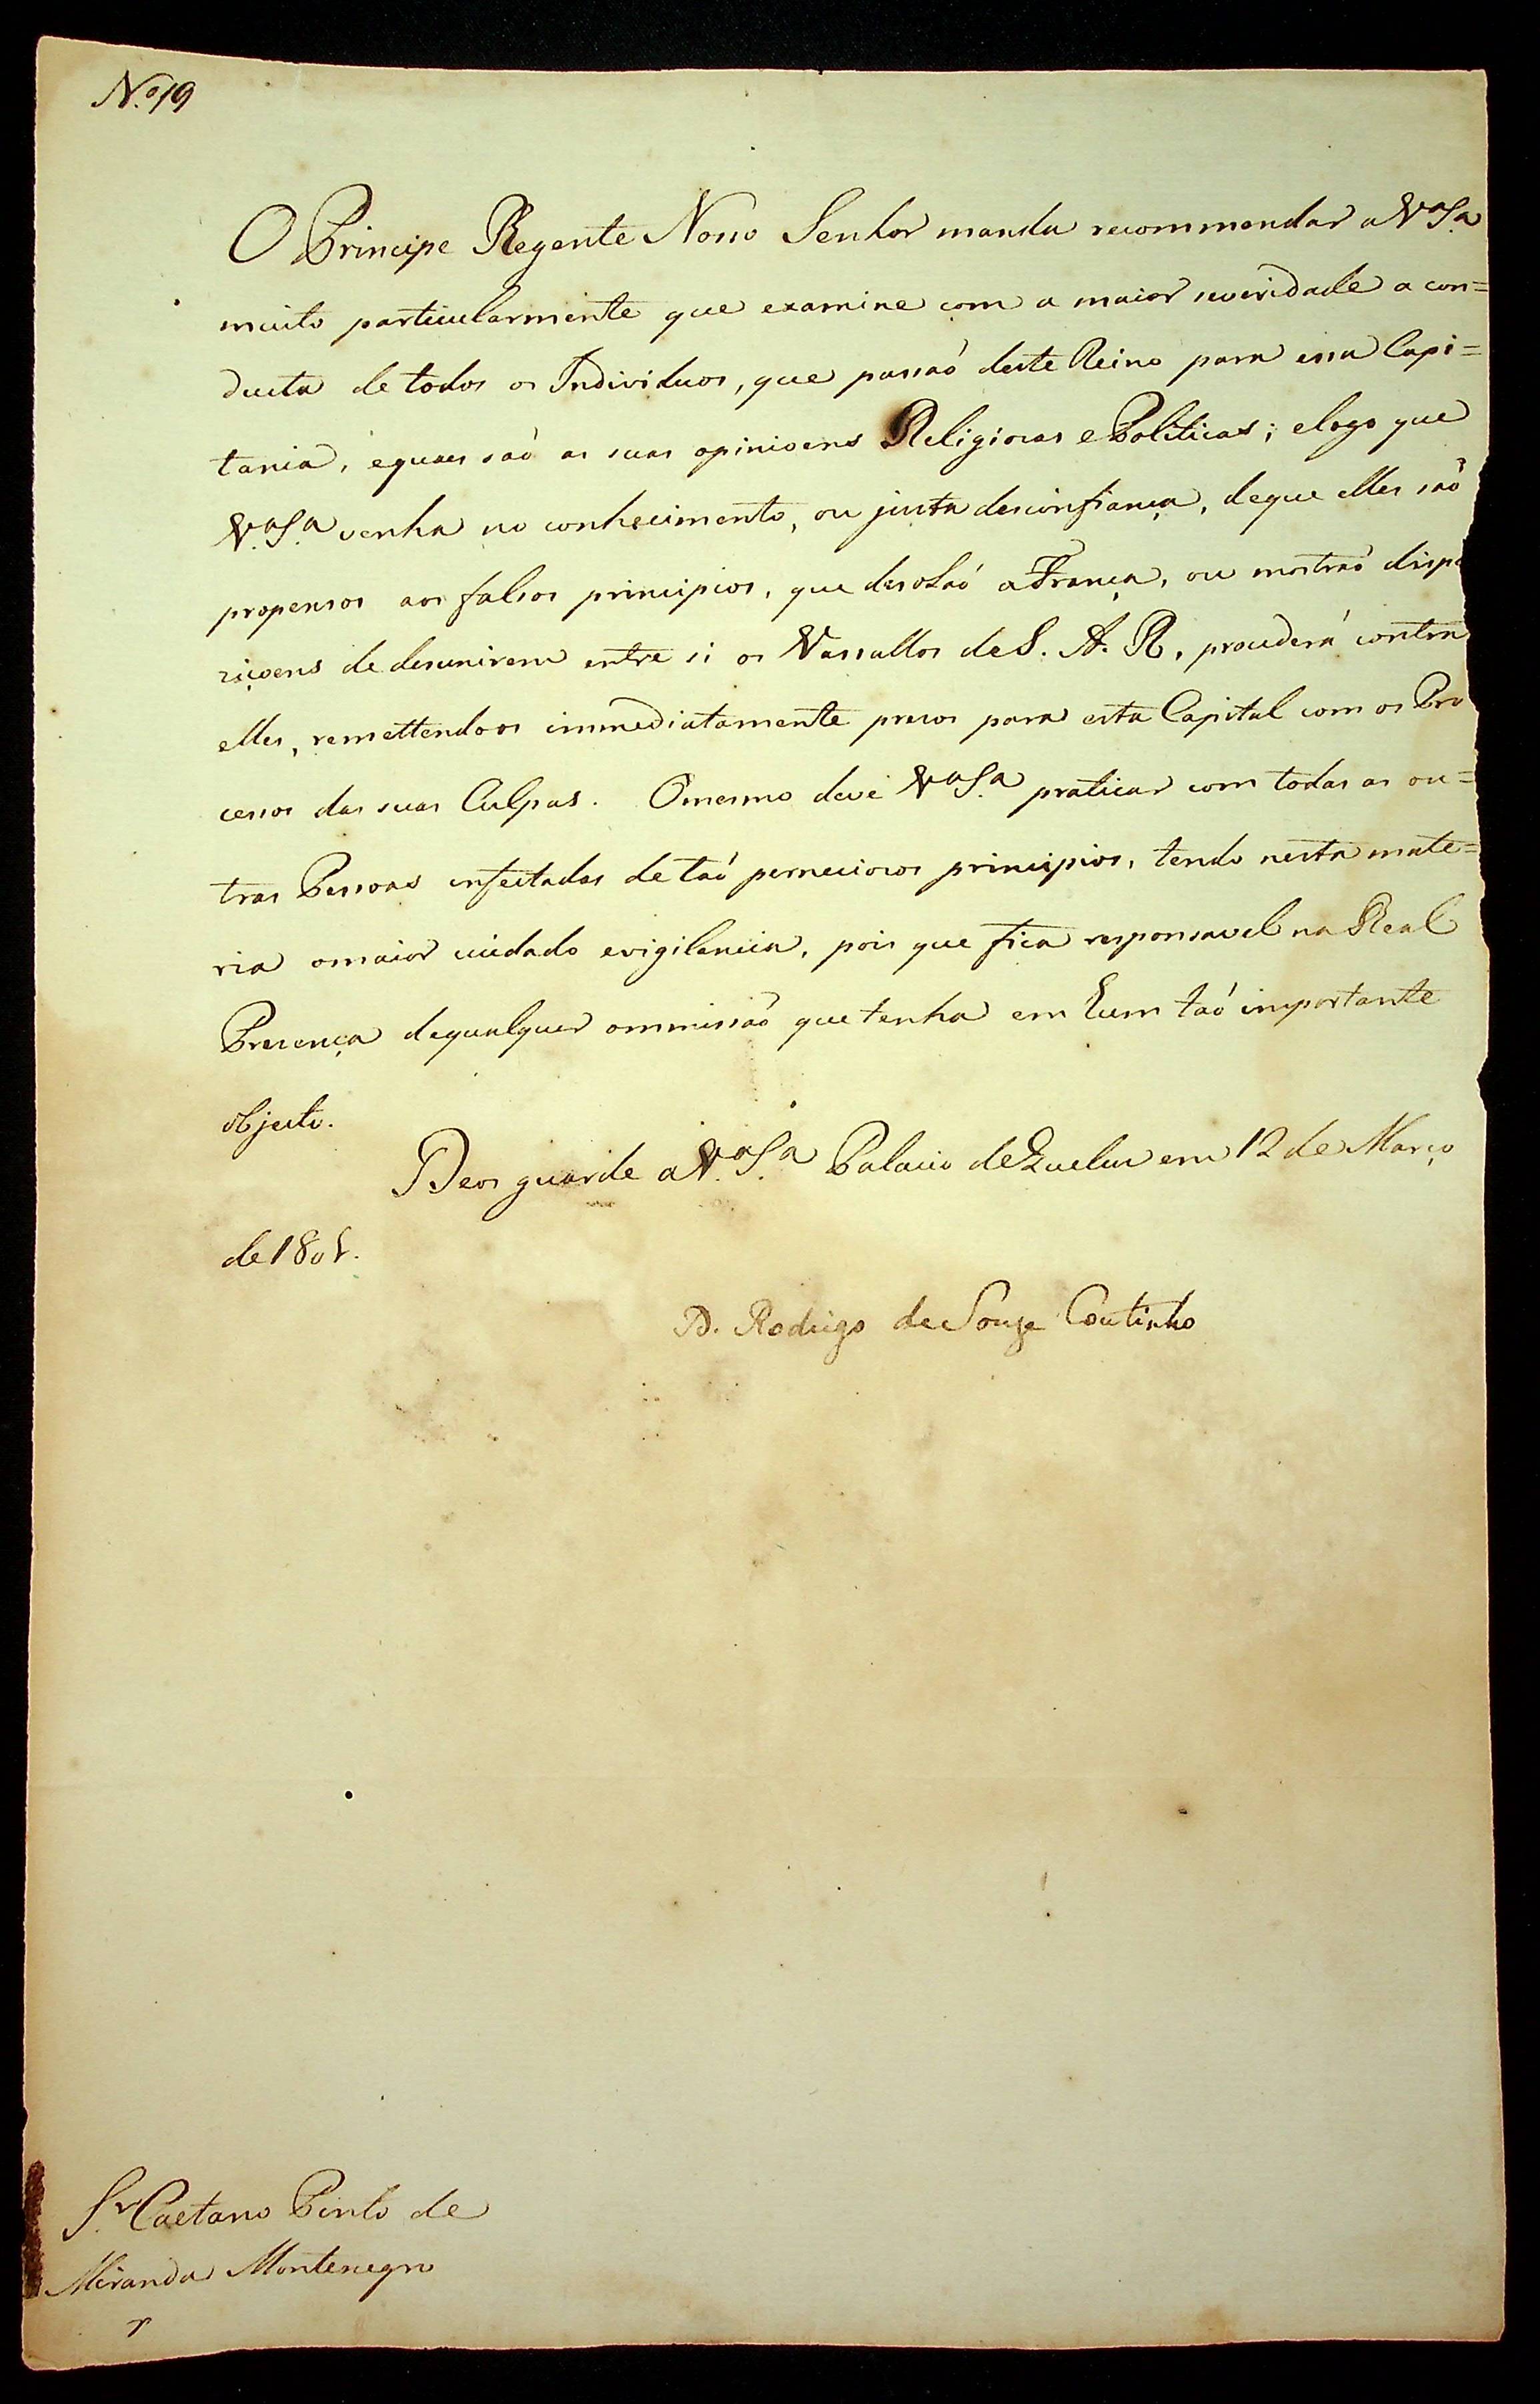 N.º 19
O Principe Regente Nosso Senhor manda recommendar a V.ª S.ª
muito particularmente que examine com a maior severidade a con=
ducta de todos os Individuos, que passaõ deste Reino para essa Capi=
tania, e quaes saõ as suas opinioens Religiosas e Politicas; e logo que
V.ª S.ª venha no conhecimento, ou justa desconfiança, de que elles saõ
propensos aos falsos principios, que desolaõ a França, ou mostraõ dispo
siçoens de desunirem entre si os Vassallos de S. A. R., procederá contra
elles, remettendoos immediatamente presos para esta Capital com os Pro
cessos das suas Culpas. O mesmo deve V.ª S.ª praticar com todas as ou=
tras Pessoas infectadas de taõ perneciosos principios, tendo nesta mate=
ria o maior cuidado e vigilancia, pois que fica responsavel na Real
Presença de qualquer ommissaõ que tenha em hum taõ importante
objecto.
Deos guarde a V.ª S.ª Palacio de Queluz em 12 de Março
de
D. Rodrigo de Souza Coutinho
S.r Caetano Pinto de
Miranda Montenegro